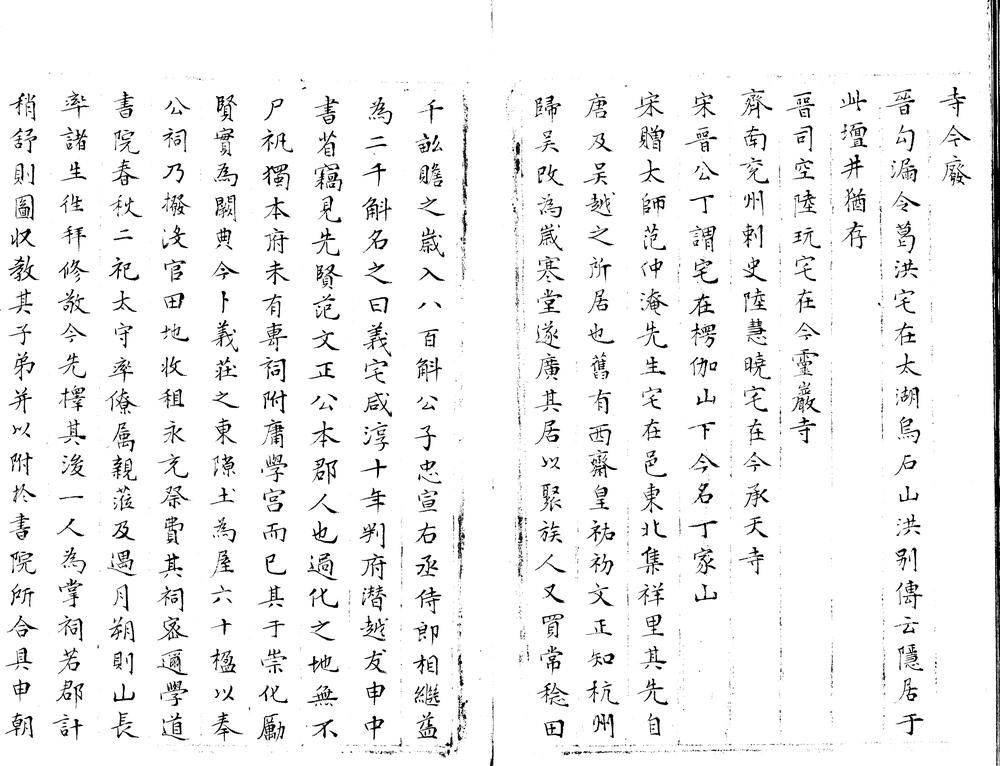 寺今廢
晉勾漏令葛洪宅在太湖烏石山洪别傳云隱居于
此壇井猶存
晉司空陸玩宅在今靈巖寺
齊南兖州刺史陸慧曉宅在今承天寺
宋晉公丁謂宅在楞伽山下今名丁家山
宋贈太師范仲淹先生宅在邑東北集祥里其先自
唐及吴越之所居也舊有西齋皇祐初文正知杭州
歸吴改為歲寒堂遂廣其居以聚族人又買常稔田
千畝贍之嵗入八百斛公子忠宣右丞侍郎相繼益
為二千斛名之曰義宅咸淳十年判府潛越友申中
書省竊見先賢范文正公本郡人也過化之地無不
尸祝獨本府未有專祠附庸學宫而已其于崇化勵
賢實為闕典今卜義莊之東隙土為屋六十楹以奉
公祠乃撥没官田地收租永充祭費其祠密邇學道
書院春秋二祀太守率僚属親蒞及遇月朔則山長
率諸生徃拜修敬今先擇其後一人為掌祠若郡計
稍舒則圖收教其子弟并以附於書院所合具申朝